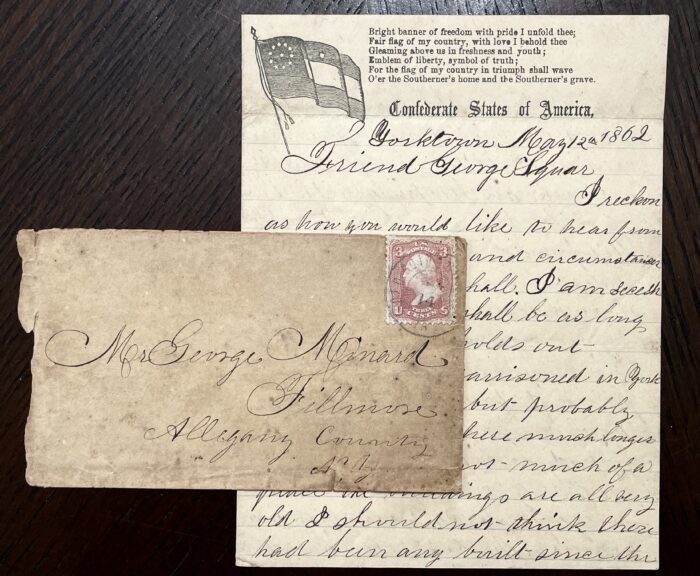 Bright banner of freedom with pride I unfold thee;
Fair flag of my country, with love I behold thee
Gleaming above us in freshness and youth;
Emblem of liberty, symbol of truth;
For the flag of my country in triumph shall wave
O'er the Southerner's home and the Southerner's grave.
Confederate States of America,
Yorktown May 12th 1862
Friend George Squar
I reckon
as how you would like to hear from
and circumstances
shall. I am secesh
shall be as long
holds out
garrisoned in York
but probably
here much longer
not much of a
place the buildings are all very
old I should not think there
had been any built since the
U.S. POSTAGE
3 3
THREE
U CENTS S
Mr George Minard
Fillmore
Allegany County
N.Y.